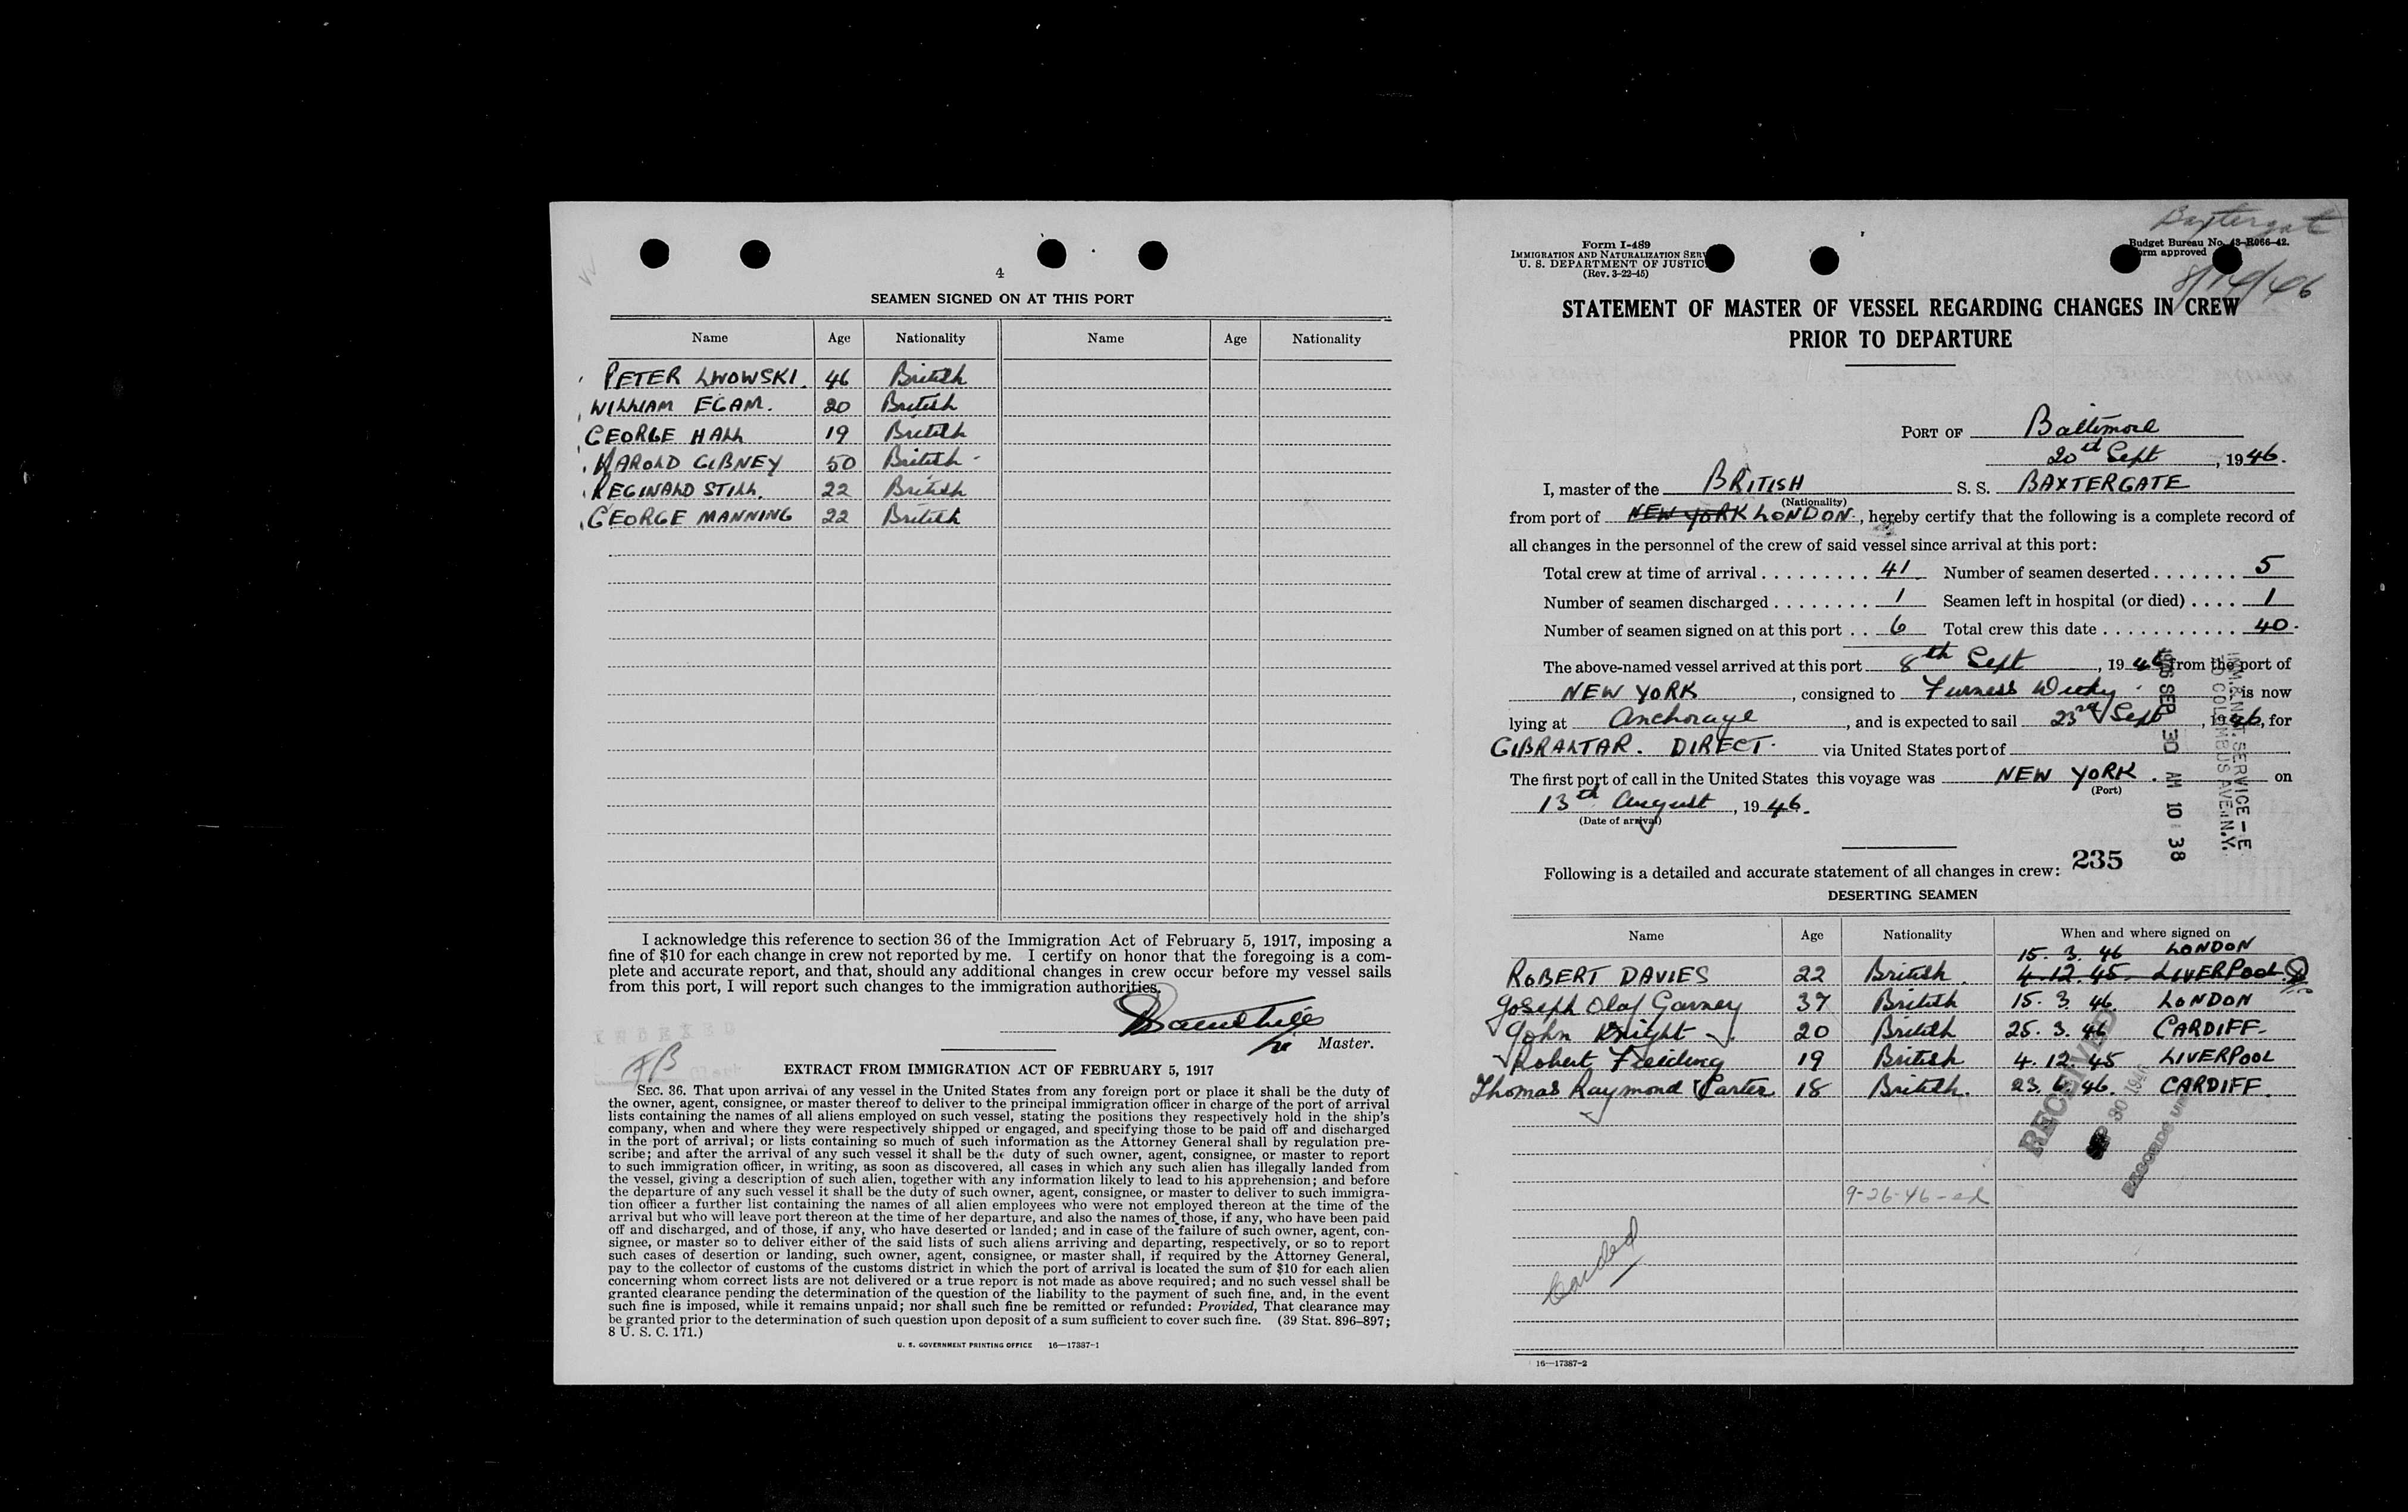 4
SEAMEN SIGNED ON AT THIS PORT
Name Age Nationality Name Age Nationality
PETER LWOWSKI. 46 British
WILLIAM EGAM. 20 British
GEORGE HALL 19 British
HAROLD GIBNEY 50 British
REGINALD STILL. 22 British
GEORGE MANNING 22 British
I acknowledge this reference to section 36 of the Immigration Act of February 5, 1917, imposing a
fine of $10 for each change in crew not reported by me. I certify on honor that the foregoing is a com-
plete and accurate report, and that, should any additional changes in crew occur before my vessel sails
from this port, I will report such changes to the immigration authorities.
Master.
INDEXED
EXTRACT FROM IMMIGRATION ACT OF FEBRUARY 5, 1917
SEC. 36. That upon arrival of any vessel in the United States from any foreign port or place it shall be the duty of
the owner, agent, consignee, or master thereof to deliver to the principal immigration officer in charge of the port of arrival
lists containing the names of all aliens employed on such vessel, stating the positions they respectively hold in the ship's
company, when and where they were respectively shipped or engaged, and specifying those to be paid off and discharged
in the port of arrival; or lists containing so much of such information as the Attorney General shall by regulation pre-
scribe; and after the arrival of any such vessel it shall be the duty of such owner, agent, consignee, or master to report
to such immigration officer, in writing, as soon as discovered, all cases in which any such alien has illegally landed from
the vessel, giving a description of such alien, together with any information likely to lead to his apprehension; and before
the departure of any such vessel it shall be the duty of such owner, agent, consignee, or master to deliver to such immigra-
tion officer a further list containing the names of all alien employees who were not employed thereon at the time of the
arrival but who will leave port thereon at the time of her departure, and also the names of those, if any, who have been paid
off and discharged, and of those, if any, who have deserted or landed; and in case of the failure of such owner, agent, con-
signee, or master so to deliver either of the said lists of such aliens arriving and departing, respectively, or so to report
such cases of desertion or landing, such owner, agent, consignee, or master shall, if required by the Attorney General,
pay to the collector of customs of the customs district in which the port of arrival is located the sum of $10 for each alien
concerning whom correct lists are not delivered or a true report is not made as above required; and no such vessel shall be
granted clearance pending the determination of the question of the liability to the payment of such fine, and, in the event
such fine is imposed, while it remains unpaid; nor shall such fine be remitted or refunded: Provided, That clearance may
be granted prior to the determination of such question upon deposit of a sum sufficient to cover such fine. (39 Stat. 896–897;
8 U. S. C. 171.)
U. S. GOVERNMENT PRINTING OFFICE 16—17387-1
Baxtergate
8/14/46
Form I-489
IMMIGRATION AND NATURALIZATION SERV
U. S. DEPARTMENT OF JUSTIC
(Rev. 3-22-45)
Budget Bureau No. 43-R066-42.
orm approved
STATEMENT OF MASTER OF VESSEL REGARDING CHANGES IN CREW
PRIOR TO DEPARTURE
PORT OF Baltimore
20th Sept, 1946.
I, master of the BRITISH S. S. BAXTERGATE
(Nationality)
from port of NEW YORK LONDON, hereby certify that the following is a complete record of
all changes in the personnel of the crew of said vessel since arrival at this port:
Total crew at time of arrival 41 Number of seamen deserted 5
Number of seamen discharged 1 Seamen left in hospital (or died) 1
Number of seamen signed on at this port 6 Total crew this date 40.
The above-named vessel arrived at this port 8th Sept, 1946 from the port of
NEW YORK, consigned to Furness Withy is now
lying at Anchorage, and is expected to sail 23rd Sept, 1946, for
GIBRALTAR. DIRECT. via United States port of
The first port of call in the United States this voyage was NEW YORK. on
(Port)
13th August, 1946.
(Date of arrival)
1946 SEP 30 AM 10 38
IMM. & NAT. SERVICE – E
COLUMBUS AVE. N.Y.
Following is a detailed and accurate statement of all changes in crew: 235
DESERTING SEAMEN
Name Age Nationality When and where signed on
15. 3. 46 LONDON
ROBERT DAVIES 22 British. 4.12.45. LIVERPOOL.
Joseph Olaf Garney 37 British 15. 3. 46. LONDON
John Knight 20 British 25. 3. 46 CARDIFF.
Robert Fielding 19 British 4. 12. 45 LIVERPOOL
Thomas Raymond Carter 18 British. 23. 6. 46. CARDIFF.
RECEIVED
SEP 30 1946
RECORDS UNIT
9-26-46-ed
Carded
16—17387-2